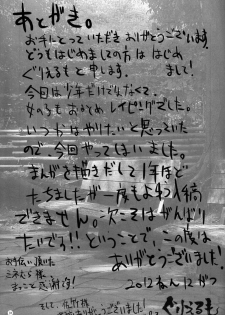 あとがき。
お手にとっていただきありがとうございます。
どうもはじめましての方は はじめまして!
ぐりえるもと申します。
今回は少年だけでなくて、
女の子も
レイピングでした。
いつかはやりたいと思っていた
ので、今回やってはいました。
まんがを描きだして1年ほど
たちましたが一度も
できません。次こそはがんばり
たいです!! ということで、この度は
ありがとうございました!
お手伝い頂いた
様、
まことに感謝
2012
そして、
様
ありがとうございました!
ぐりえるも